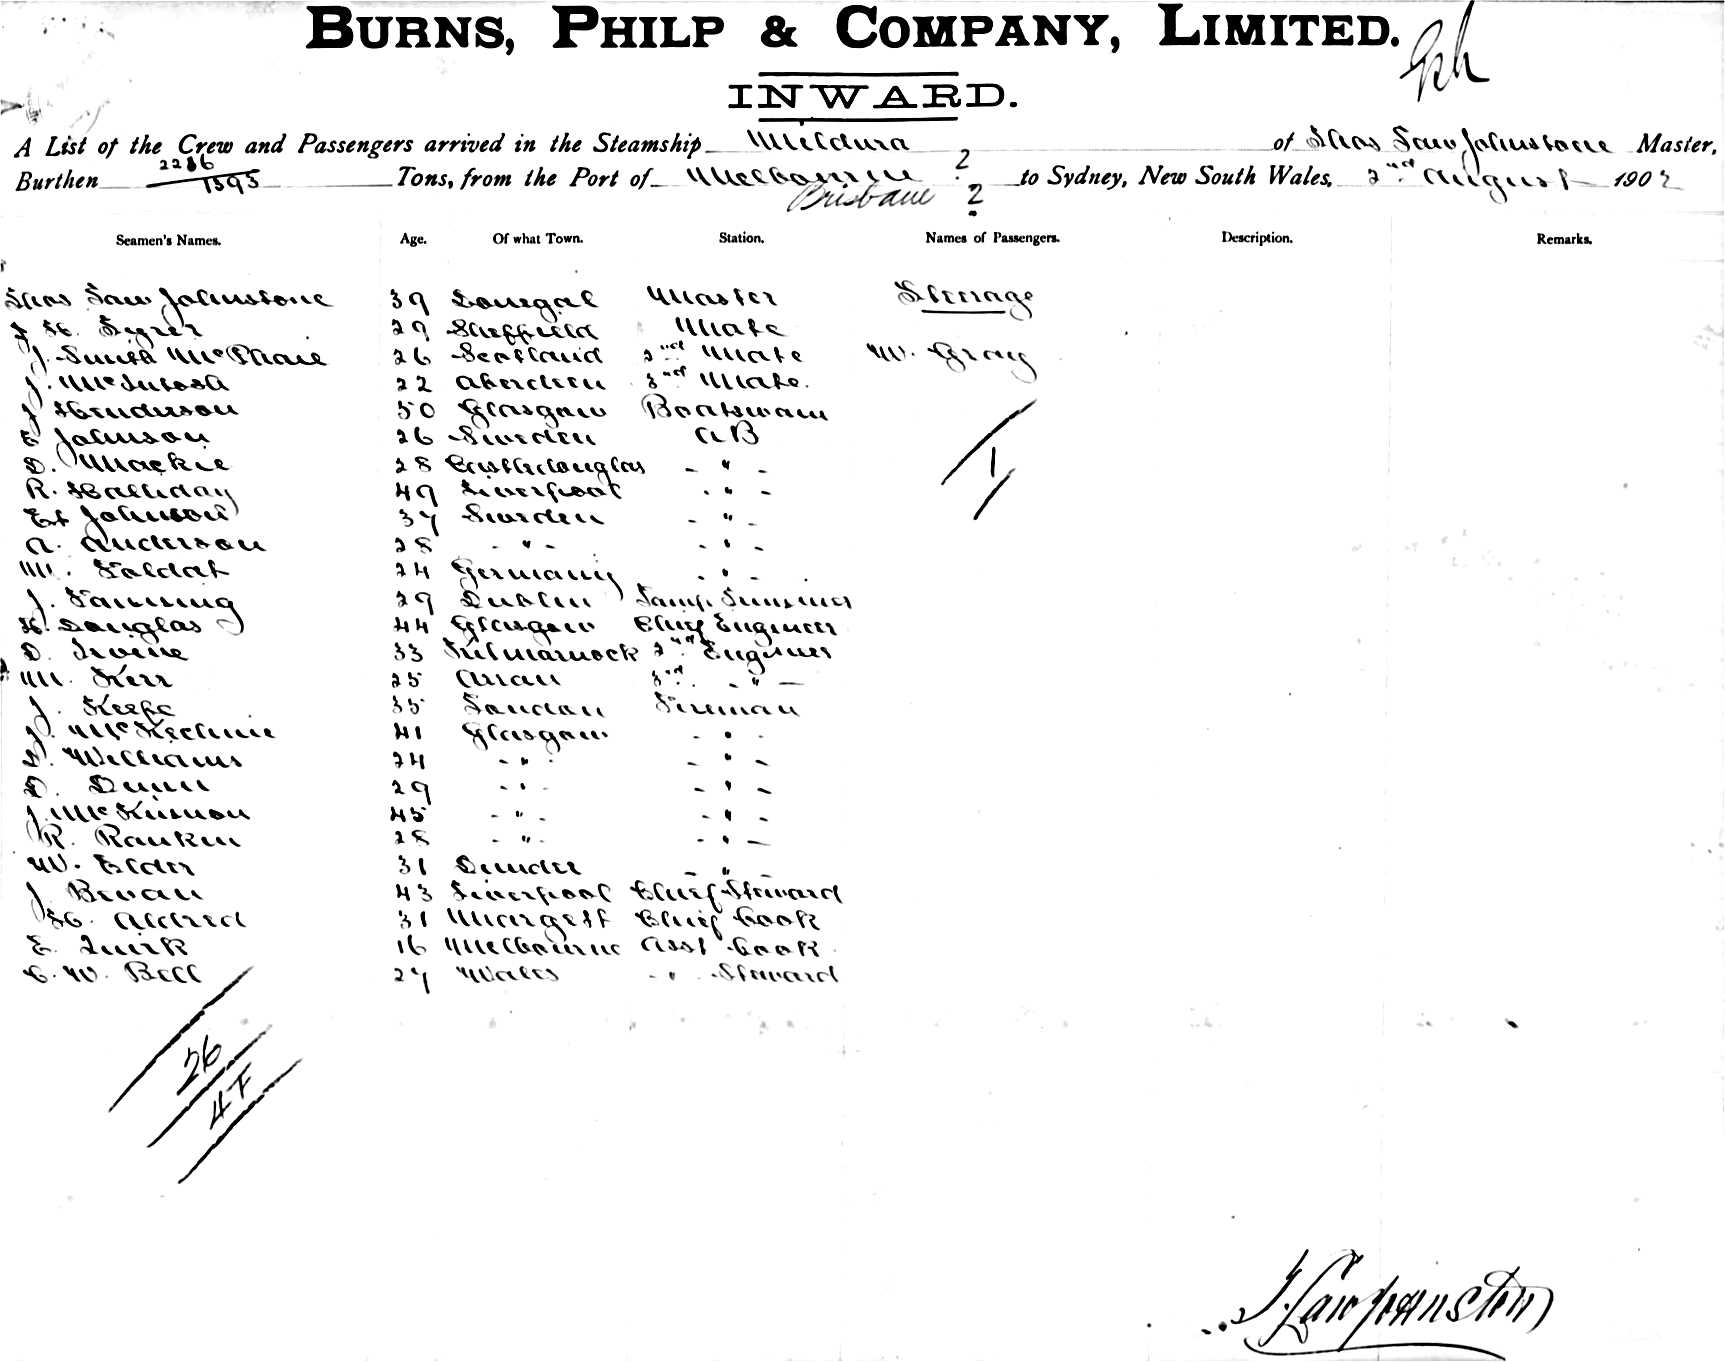 BURNS, PHILP & COMPANY, LIMITED.
INWARD.
A List of the Crew and Passengers arrived in the Steamship Mildura of Thos Law Johnstone Master,
Burthen 2286 / 1393 Tons, from the Port of Melbourne ? to Sydney, New South Wales, 2nd August 1902
Brisbane ?
Seamen's Names. Age. Of what Town. Station. Names of Passengers. Description. Remarks.
Thos Law Johnstone 39 Donegal Master Steerage
J H. Syrer 29 Sheffield Mate
J. Smith McPhaie 26 Scotland 2nd Mate W. Gray
J. McIntosh 22 Aberdeen 3rd Mate.
J Henderson 50 Glasgow Boatswain
E Johnson 26 Sweden AB
D. Mackie 28 Castledouglas - " - 1
R. Halliday 49 Liverpool . " -
Ed Johnson 37 Sweden - " -
A. Anderson 28 - " - - " -
M. Soldat 24 Germany - " -
J. Fanning 29 Dublin Lamp Trimmer
H. Douglas 44 Glasgow Chief Engineer
D. Irvine 33 Kilmarnock 2nd Engineer
M. Kerr 25 Arran 3rd - " -
J. Keefe 35 London Fireman
J. McKechnie 41 Glasgow - " -
D. Williams 24 - " - - " -
D. Dunn 29 - " - - " -
J. McKinnon 45 - " - - " -
R. Rankin 28 - " - - " -
W. Elder 31 Dundee - " -
J Bevan 43 Liverpool Chief Steward
H. Aldred 31 Margett Chief Cook
E. Quirk 16 Melbourne Asst Cook
C. W. Bell 27 Wales - " - Steward
26
4F
J. Law Johnston